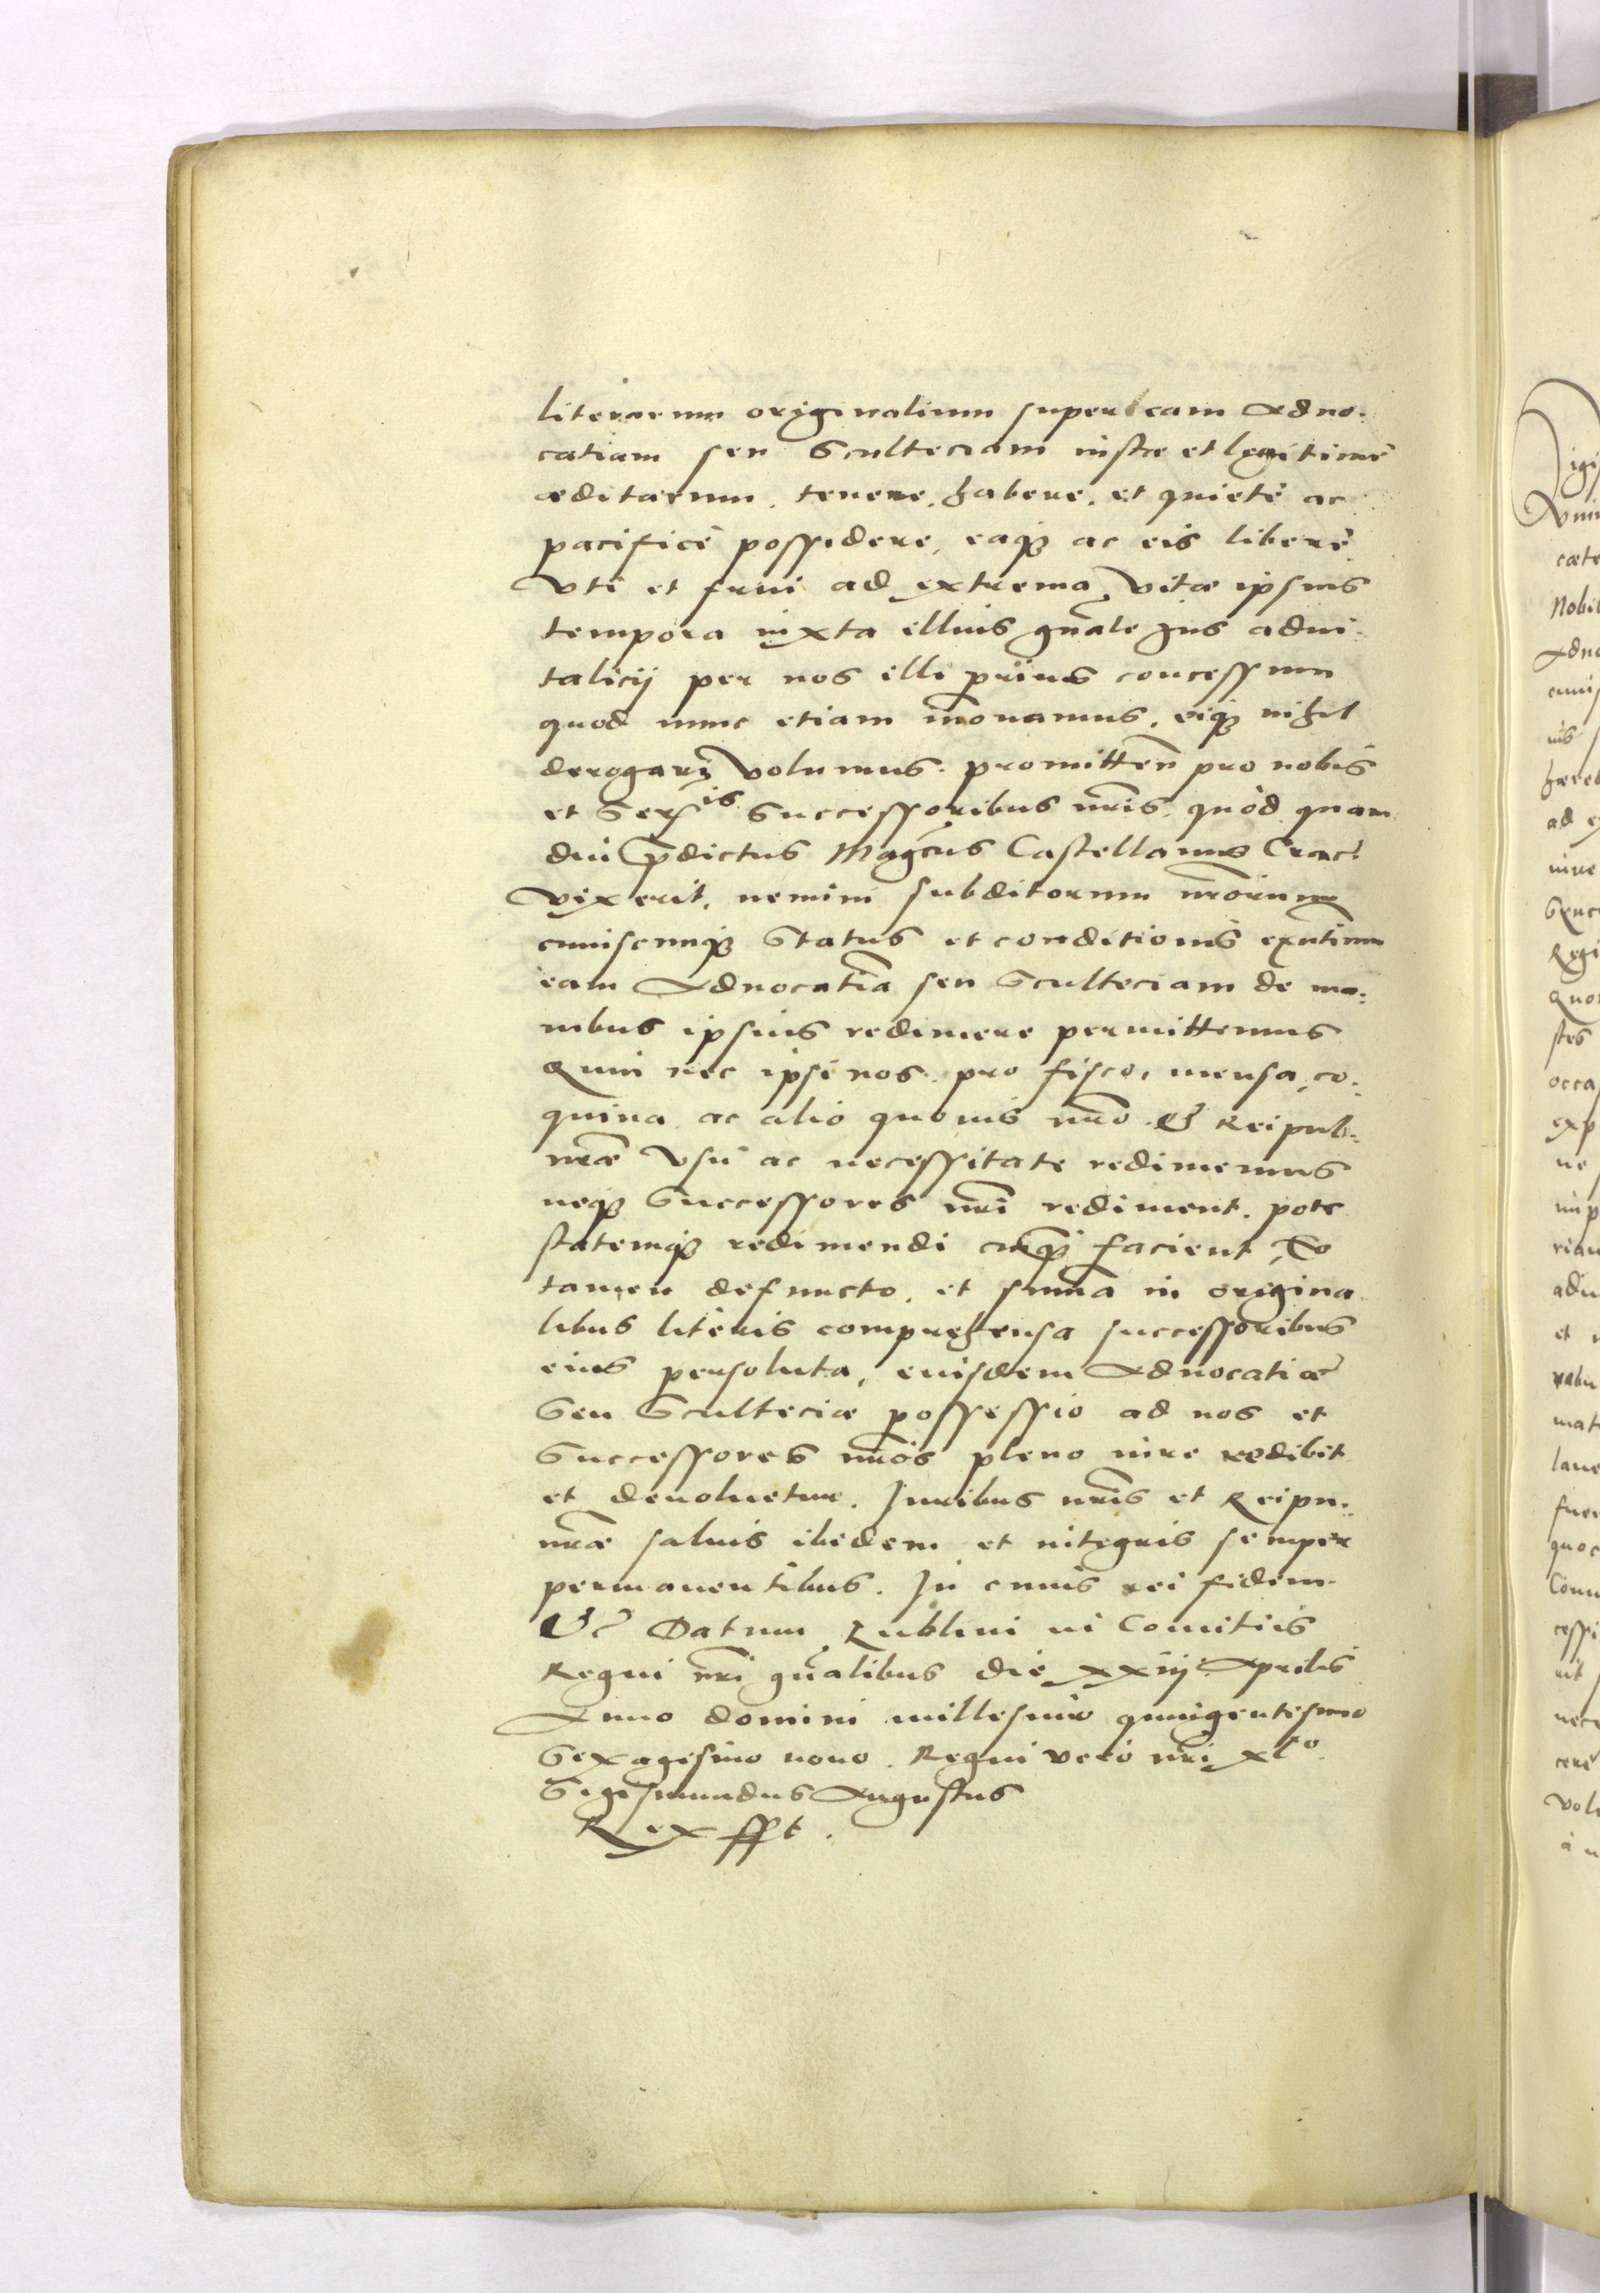 literarum originalium super eam Aduo-
catiam seu Sculteciam iuste et legitimè
æditarum. tenere, habere, et quietè ac
pacificè possidere, eaqȝ ac eis liberè
Vti et frui ad extrema vitæ ipsius
tempora iuxta illius gn̄ale Jus adui-
talicij per nos illi prius concessum
quod nunc etiam innouamus, eiqȝ nihil
derogari volumus. promitten̄ pro nobis
et Ser^is Successoribus nr̄is. quòd quam
diu p̄dictus Mag^cus Castellanus Crac:
vixerit, nemini subditorum nr̄orum
cuiuscunqȝ Status et conditionis exn̄tium
eam Aduocatiā seu Sculteciam de ma-
nibus ipsius redimere permittemus
Quin nec ipsi nos pro fisco, mensa, co-
quina ac alio quouis nr̄o & Reipub:
nr̄æ vsu ac necessitate redimemus
neqȝ Successores nr̄i rediment. pote
statemqȝ redimendi cuiqȝ facient. Eo
tamen defuncto, et sum̄a in origina
libus literis comprehensa successoribus
eius persoluta, eiusdem Aduocatiæ
Seu Sculteciæ possessio ad nos et
Successores nr̄os pleno iure redibit
et deuoluetur. Juribus nr̄is et Reipu:
nr̄æ saluis ibidem et integris semper
permanentibus. In cuius rei fidem
&c Datum Lublini in Comitiis
Regni nr̄i gn̄alibus die xxiij Aprilis
Anno domini millesimo quingentesimo
Sexagesimo nono. Regni verò nr̄i xl^o
Sigismundus Augustus
Rex sst.